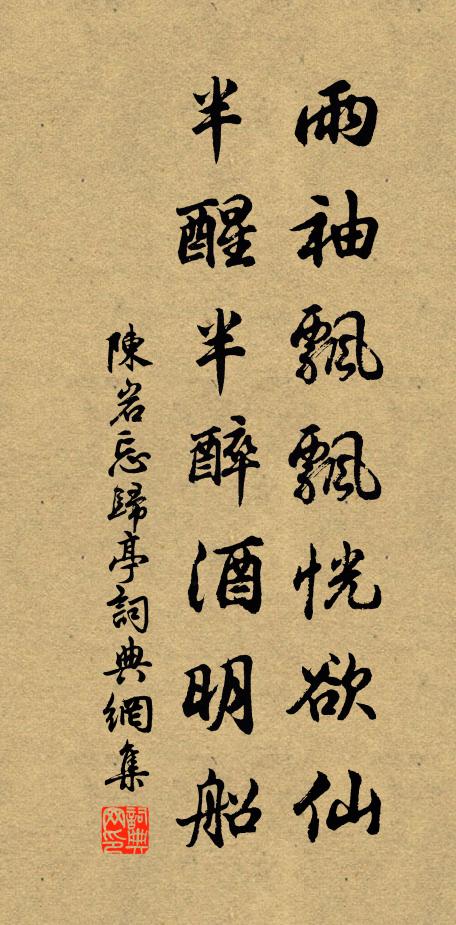 兩袖飄飄恍欲仙
半醒半醉酒明船
陳岩忘歸亭詞典網集
詞典网印